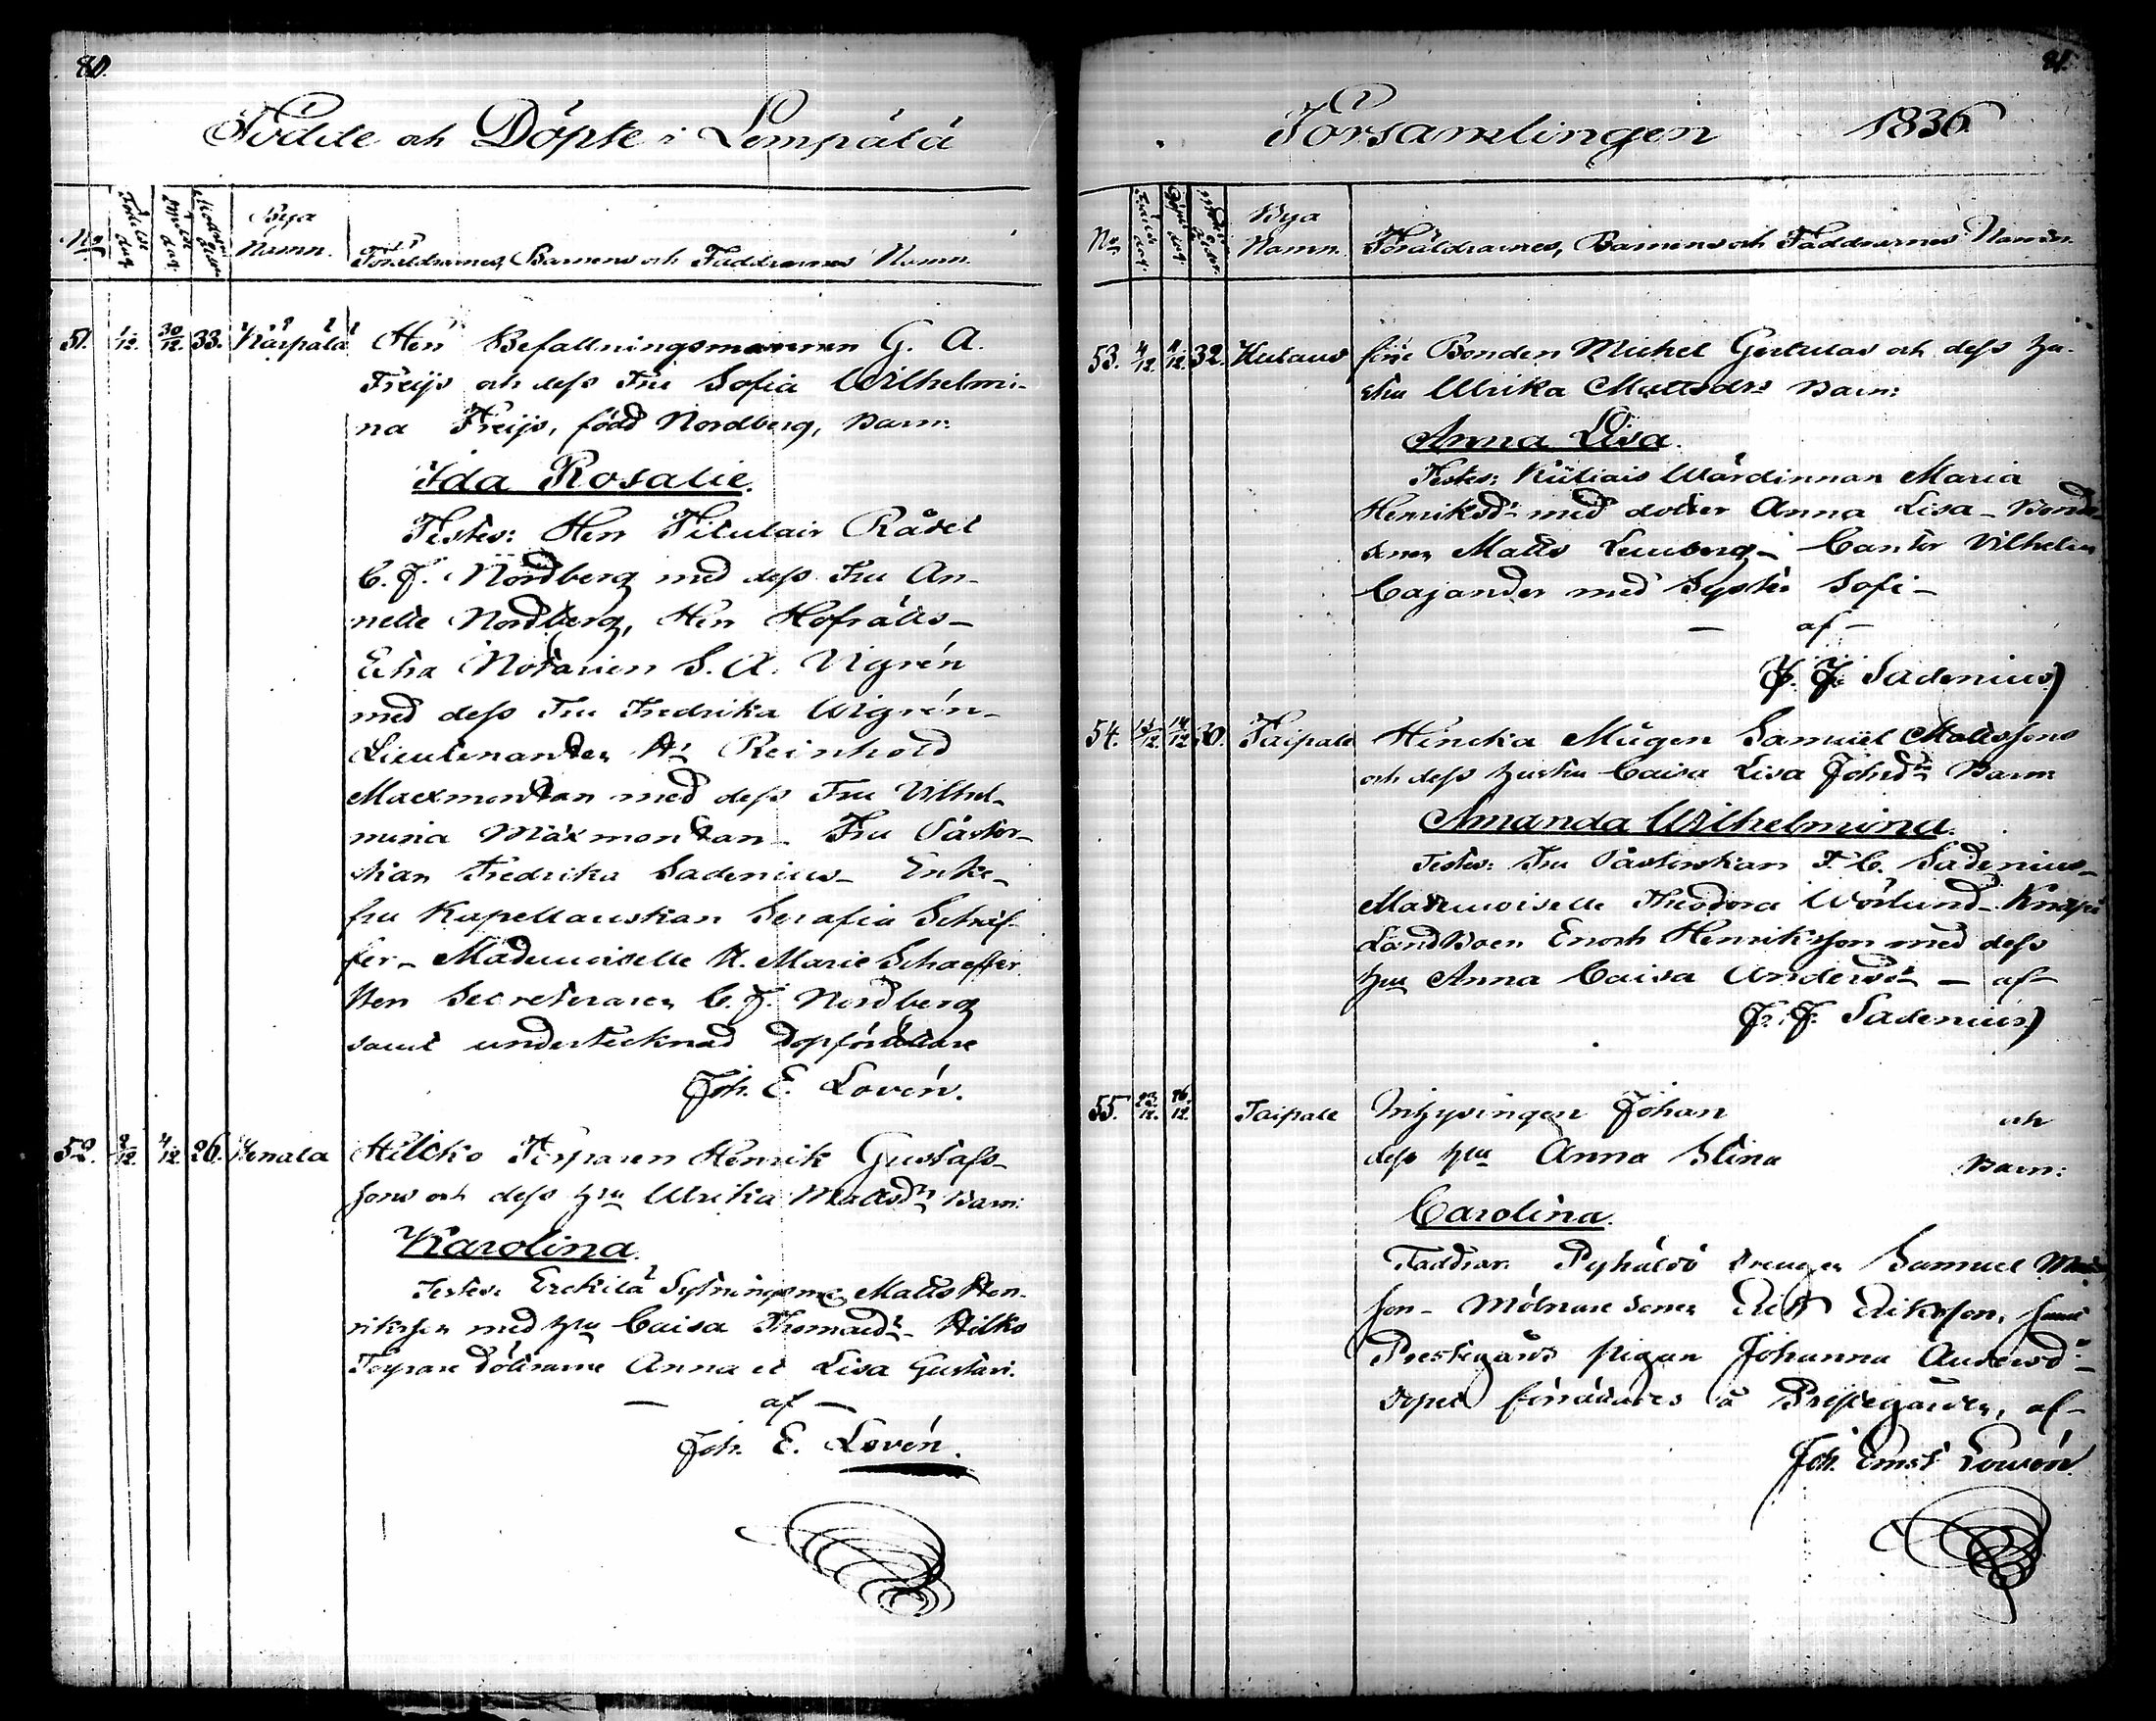 80.
Födde och Döpte i Lempälä
No
Födelse dag
Döpelse dag
Modrens ålder
Bya
Namn.
Föräldrarnes, Barnens och Faddrarnes Namn.
51. 1/12. 30/12. 33. Kärpälä Herr Befallningsmannen G. A.
Freijs och dess Fru Sofia Wilhelmi-
na Freijs, född Nordberg, Barn:
Ida Rosalie.
Testes: Herr Titulair Rådet
C. J. Nordberg med dess Fru An-
nette Nordberg, Herr Hofrätts-
Extra Notarien S. A. Vigrén
med dess Fru Fredrika Wigrén-
Lieutenanten Hr Reinhold
Maexmontan med dess Fru Vilhel-
mina Mäxmontan- Fru Pastor-
skan Fredrika Sadenius- Enke-
fru Kapellanskan Serafia Schäf-
fer- Mademoiselle U. Marie Schaeffer
Herr Secreteraren C. J. Nordberg
samt undertecknad Dopförrättare
Joh. E. Lovén.
52. 2/12. 4/12. 26. Henala Hilcko Torparen Henrik Gustafs-
sons och dess hru Ulrika Mattsdr Barn:
Karolina.
Testes: Erckilä Sytningsm Matts Hen-
riksson med hru Caisa Thomasdr- Hilko
Torpare Döttrarne Anna et Lisa Gustavi.
— af —
Joh. E. Lovén.
81.
Församlingen 1836
No
Födelse dag.
Döpelse dag.
Modrens ålder.
Bya
Namn.
Föräldrarnes, Barnens och Faddrarnes Namn.
53. 4/12. 11/12. 32. Kuliais förre Bonden Michel Gertulas och dess hu-
stru Ulrika Mattsdrs Barn:
Anna Lisa.
Testes: Kuliais Wärdinnan Maria
Henriksdr med dotter Anna Lisa- Bonde
sonen Matts Leuberg- Cantor Vilhelm
Cajander med Syster Sofi-
— af —
J. J. Sadenius
54. 13/12. 14/12. 30. Taipale Hincka Mågen Samuel Mattssons
och dess hustru Caisa Lisa Johsdrs Barn
Amanda Wilhelmina.
Testes: Fru Pastorskan F. C. Sadenius-
Mademoiselle Theodora Wörlund- Knape
Landboen Enoch Henriksson med dess
hru Anna Caisa Andersdr — af —
J. J. Sadenius
55. 23/12. 26/12. Taipale Inhysingen Johan och
dess hru Anna Stina Barn:
Carolina.
Faddrar: Pyhältö drengen Samuel
son- Mölnare sonen Erik Eriksson, samt
Prestegårds pigan Johanna Andersdr-
dopet förrättades å Prestegården, af-
Joh. Ernst Lowén.